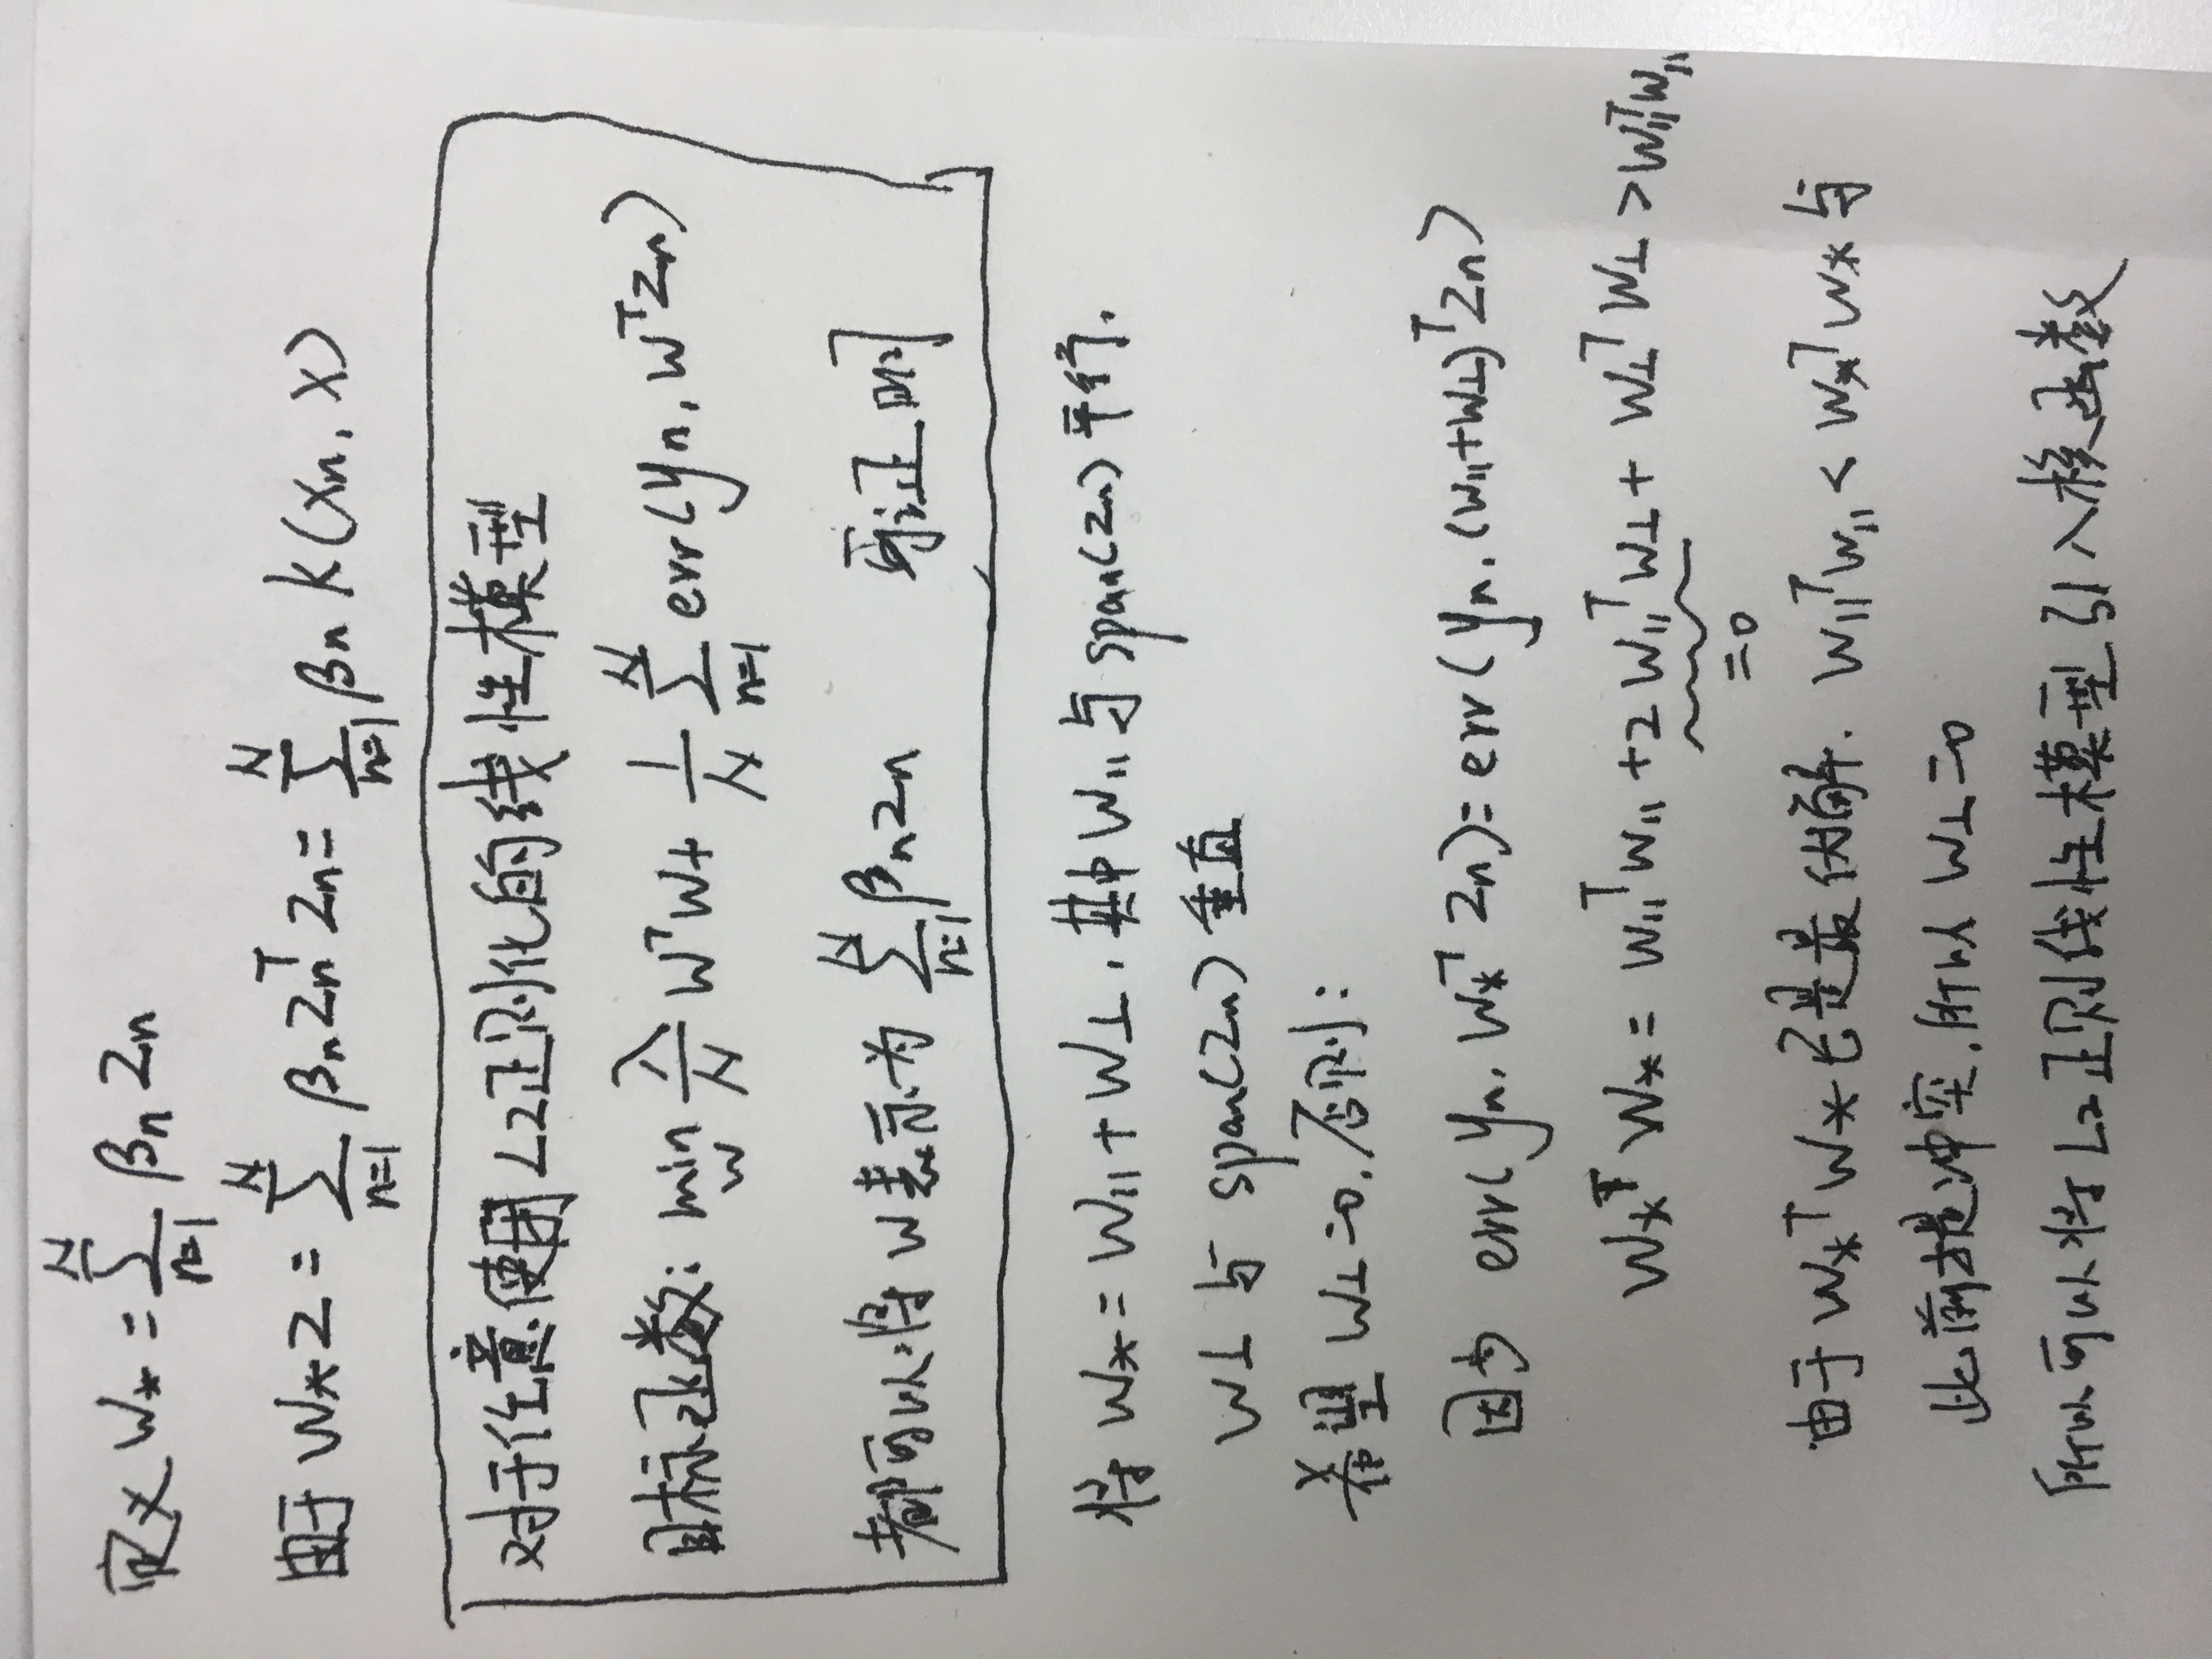 定义 W* = Σ_{n=1}^{N} βn Zn
由于 W*Z = Σ_{n=1}^{N} βn Zn^T Zn = Σ_{n=1}^{N} βn K(Xn, X)
对于任意使用L2正则化的线性模型
目标函数: min_W λ/N W^T W + 1/N Σ_{n=1}^{N} err(yn, W^T Zn)
都可以将 W 表示为 Σ_{n=1}^{N} βn Zn 可证明
将 W* = W∥ + W⊥, 其中 W∥ 与 span(Zn) 平行.
W⊥ 与 span(Zn) 垂直
希望 W⊥=0. 否则:
因为 err(yn, W*^T Zn) = err(yn, (W∥+W⊥)^T Zn)
W*^T W* = W∥^T W∥ + 2 W∥^T W⊥ + W⊥^T W⊥ > W∥^T W∥
=0
由于 W*^T W* 已是最优解. W∥^T W∥ < W*^T W* 与
此前提冲突. 所以 W⊥=0
所以可以将L2正则线性模型引入核函数